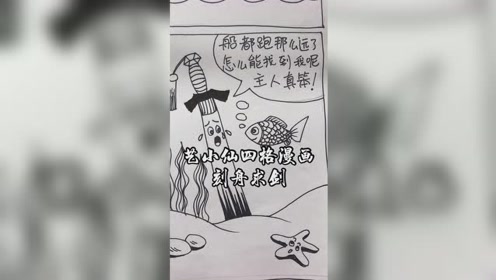 船都跑那么远了
怎么能找到我呢
主人真笨!
艺小仙四格漫画
刻舟求剑